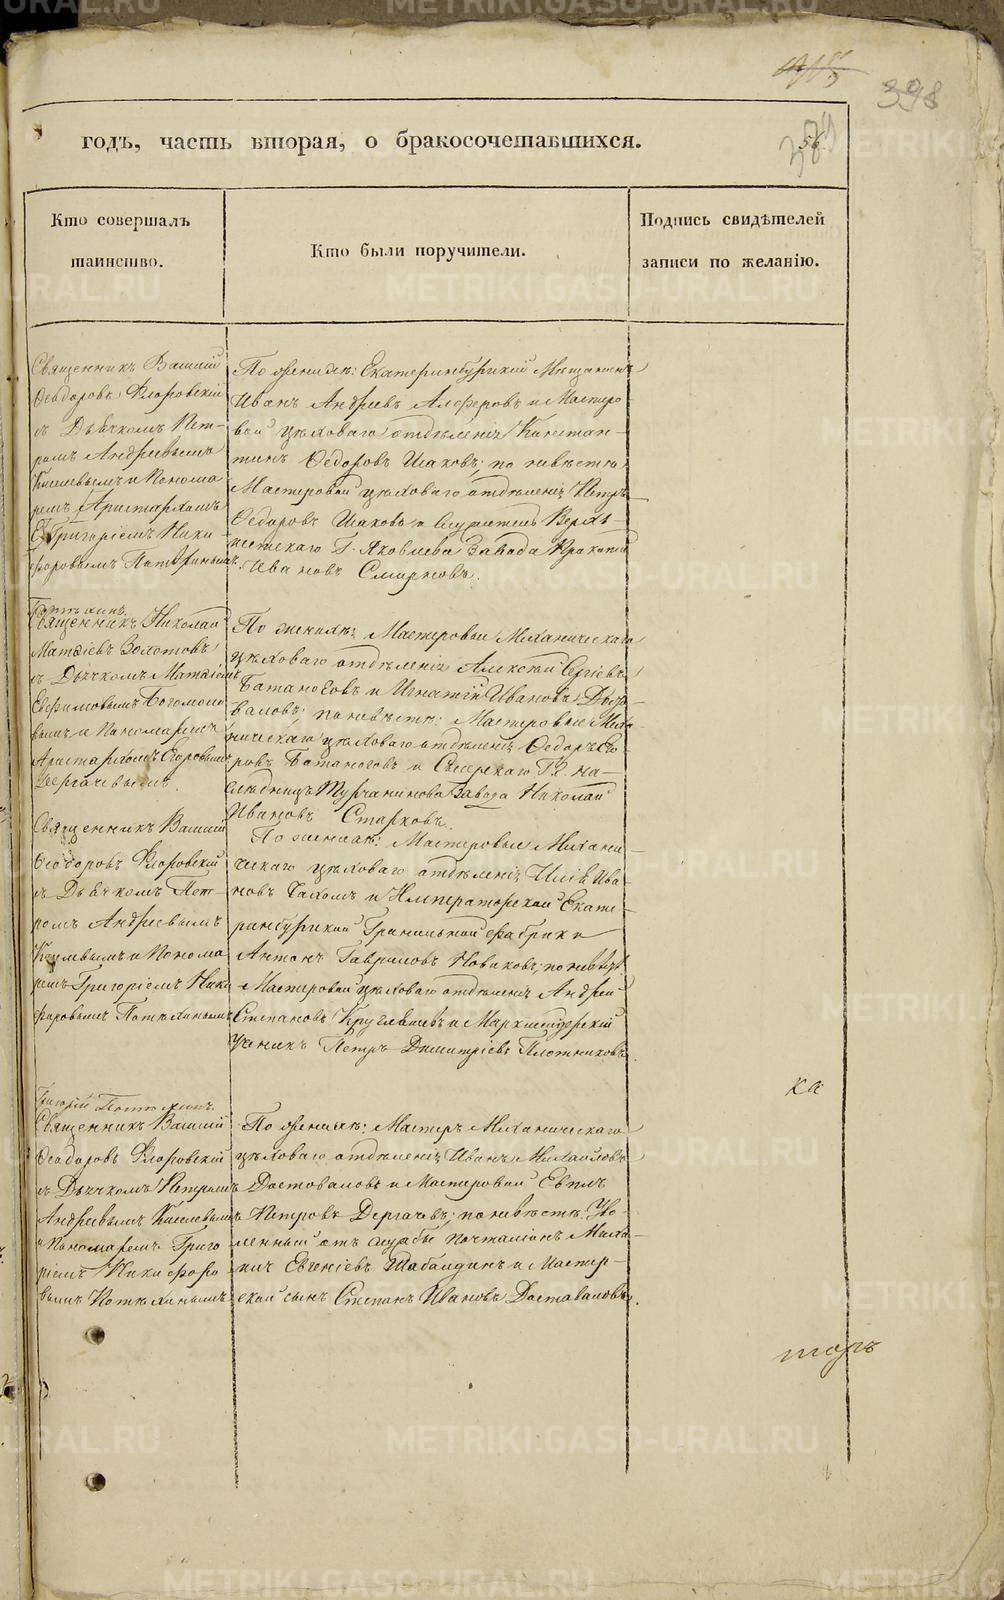 398
56
годъ, часть вторая, о бракосочетавшихся.
Кто совершалъ
таинство.
Кто были поручители.
Подпись свидѣтелей
записи по желанію.
Священникъ Василій
Феодоровъ Флоровскій
съ Дьячкомъ Пет-
ромъ Андреевымъ
Киселевымъ и Понома
ремъ
Григоріемъ Ники
форовымъ Потѣхинымъ.
По женихѣ: Екатеринбургскій Мѣщанинъ
Иванъ Андреевъ Алферовъ и Мастеро-
вой цѣховаго отдѣленія Констан-
тинъ Федоровъ Исаковъ; по невѣстѣ
Мастеровой цѣховаго отдѣленія Петръ
Федоровъ Исаковъ и Служитель Верхъ-
исетскаго Г. Яковлева Завода
Ивановъ Смирновъ.
Потѣхинъ.
Священникъ Николай
Матвіевъ Золотовъ
съ Дьячкомъ Матвіемъ
Евфимовымъ Богомоло
вымъ и Пономаремъ
Аристархомъ Егоровымъ
Дергачевымъ.
По женихѣ: Мастеровые Механическаго
цѣховаго отдѣленія Алексѣй Сергіевъ
Батаноговъ и Игнатій Ивановъ
валовъ; по невѣстѣ: Мастеровые Меха
ническаго цѣховаго отдѣленія Федоръ Его
ровъ Батаноговъ и Сысерскаго Гд. на-
слѣдницъ Турчанинова Завода Николай
Ивановъ Старковъ.
Священникъ Василій
Феодоровъ Флоровскій
съ Дьячкомъ Пет-
ромъ Андреевымъ
Киселевымъ и Понома
ремъ Григоріемъ Ники
форовымъ Потѣхинымъ
По женихѣ: Мастеровые Механи-
ческаго цѣховаго отдѣленія Илія Ива-
новъ и Императорской Екате-
ринбургской Гранильной фабрики
Антонъ Гавриловъ Новиковъ; по невѣстѣ
Мастеровой цѣховаго отдѣленія Андрей
Степановъ Кругляшевъ и Маркшейдерскій
Ученикъ Петръ Димитріевъ Плотниковъ.
ка
Григорій Потѣхинъ.
Священникъ Василій
Феодоровъ Флоровскій
съ Дьячкомъ Петромъ
Андреевымъ Киселевымъ
и Пономаремъ Григо
ріемъ Никифоро-
вымъ Потѣхинымъ
По женихѣ: Мастеръ Механическаго
цѣховаго отдѣленія Иванъ Михайловъ
Доставаловъ и Мастеровой Евплъ
Петровъ Дергачевъ; по невѣстѣ: Уво-
ленный отъ службы почталіонъ Миха-
илъ Евгеніевъ Шабалдинъ и Мастер-
ской сынъ Степанъ Ивановъ Доставаловъ.
торъ
METRIKI.GASO-URAL.RU